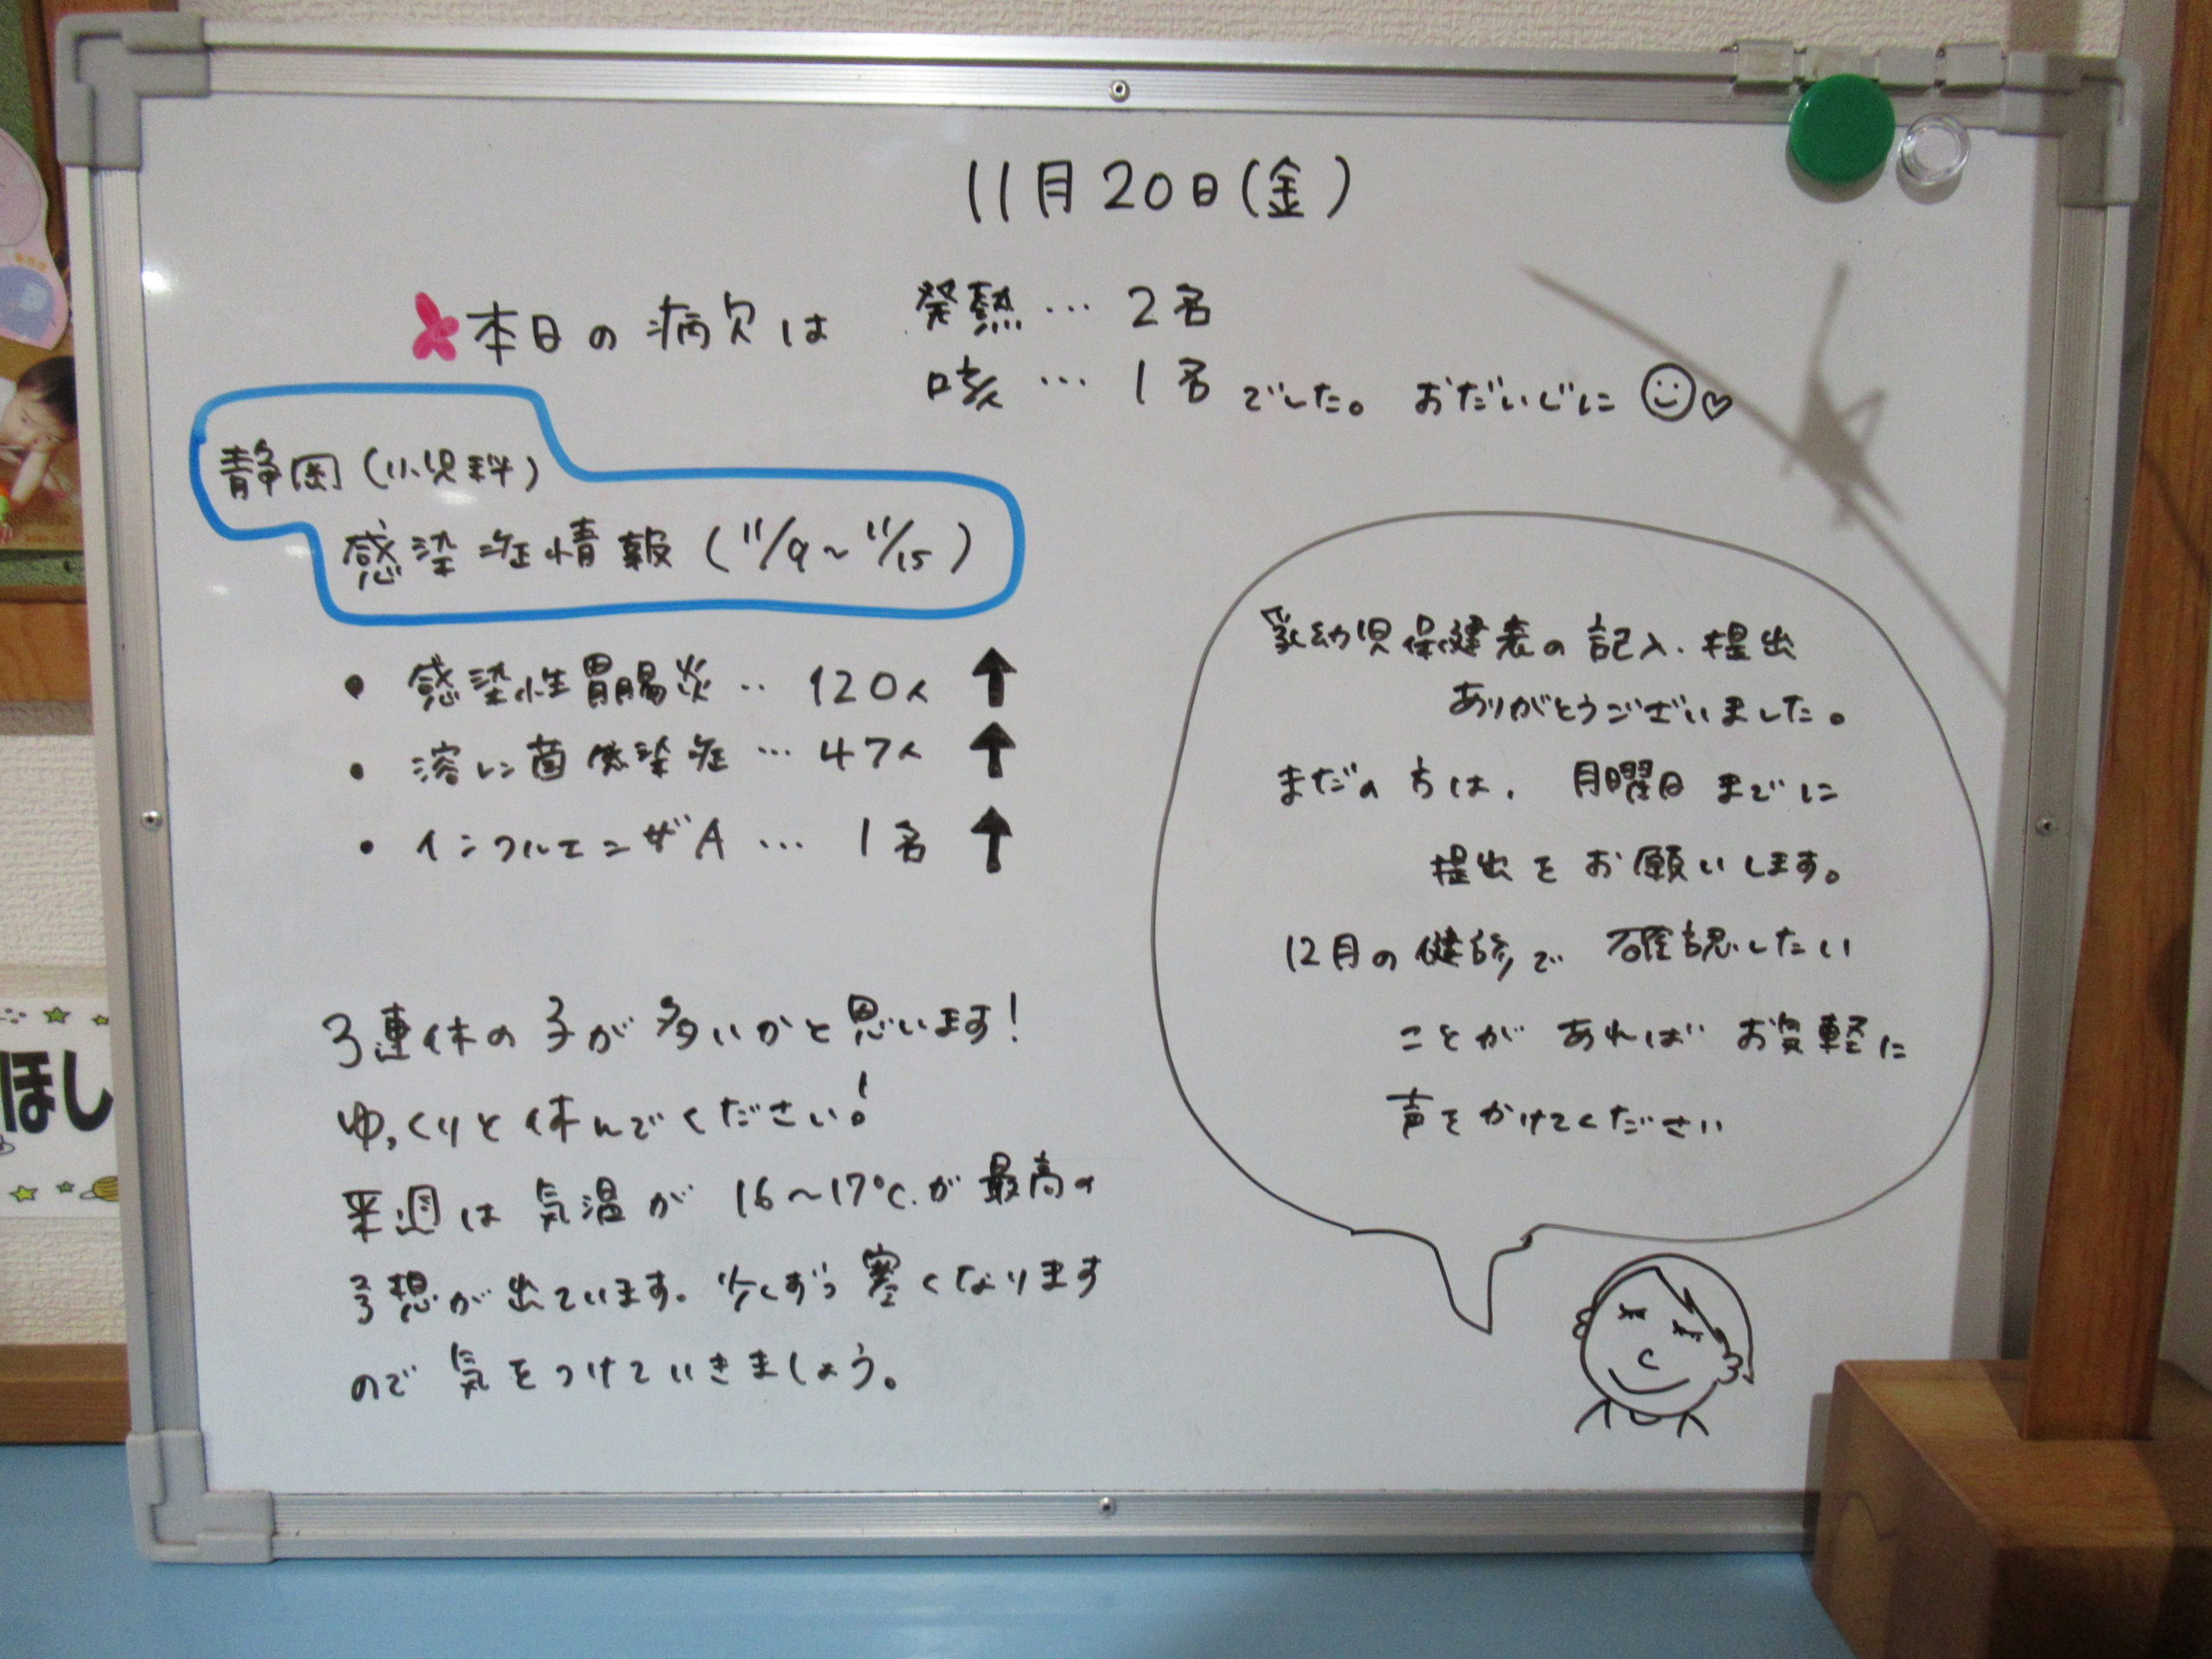 11月20日(金)
本日の病欠は
発熱… 2名
咳… 1名 でした。おだいじに
静岡(小児科)
感染症情報(11/9~11/15)
・感染性胃腸炎‥120人 ↑
・溶レン菌感染症…47人 ↑
・インフルエンザA… 1名 ↑
3連休の子が多いかと思います!
ゆっくりと休んでください!
来週は気温が16~17℃が最高の
予想が出ています。少しずつ寒くなります
ので気をつけていきましょう。
乳幼児保健表の記入、提出
ありがとうございました。
まだの方は、月曜日までに
提出をお願いします。
12月の健診で確認したい
ことがあればお気軽に
声をかけてください
ほし